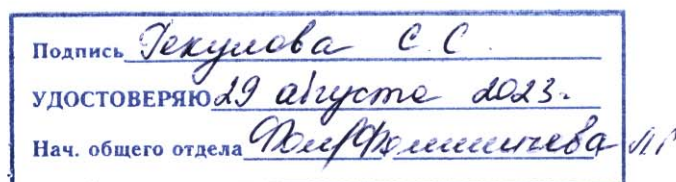 Подпись Рекулова С.С.
УДОСТОВЕРЯЮ 29 августа 2023.
Нач. общего отдела